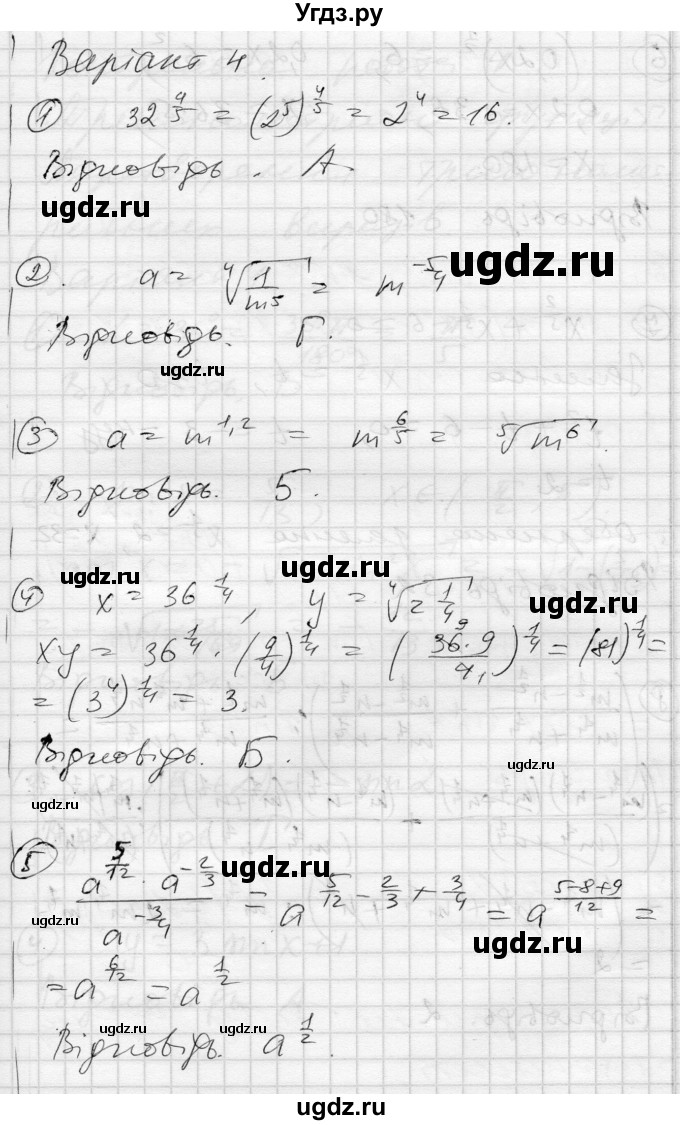 Угдз.ру
Варіант 4.
① 32^{4/5} = (2^5)^{4/5} = 2^4 = 16.
Відповідь. А.
ugdz.ru
② a = \sqrt[4]{\frac{1}{m^5}} = m^{-5/4}
ugdz.ru
Відповідь. Г.
ugdz.ru
③ a = m^{1,2} = m^{6/5} = \sqrt[5]{m^6}.
Відповідь. Б.
ugdz.ru
ugdz.ru
④ x = 36^{1/4}, y = \sqrt[4]{2\frac{1}{4}}
ugdz.ru
xy = 36^{1/4} · (\frac{9}{4})^{1/4} = (\frac{36 · 9}{4})^{1/4} = (81)^{1/4} =
= (3^4)^{1/4} = 3.
Відповідь. Б.
ugdz.ru
ugdz.ru
⑤ \frac{a^{5/12} · a^{-2/3}}{a^{-3/4}} = a^{5/12 - 2/3 + 3/4} = a^{\frac{5-8+9}{12}} =
ugdz.ru
ugdz.ru
ugdz.ru
= a^{6/12} = a^{1/2}
ugdz.ru
ugdz.ru
Відповідь. a^{1/2}.
ugdz.ru
ugdz.ru